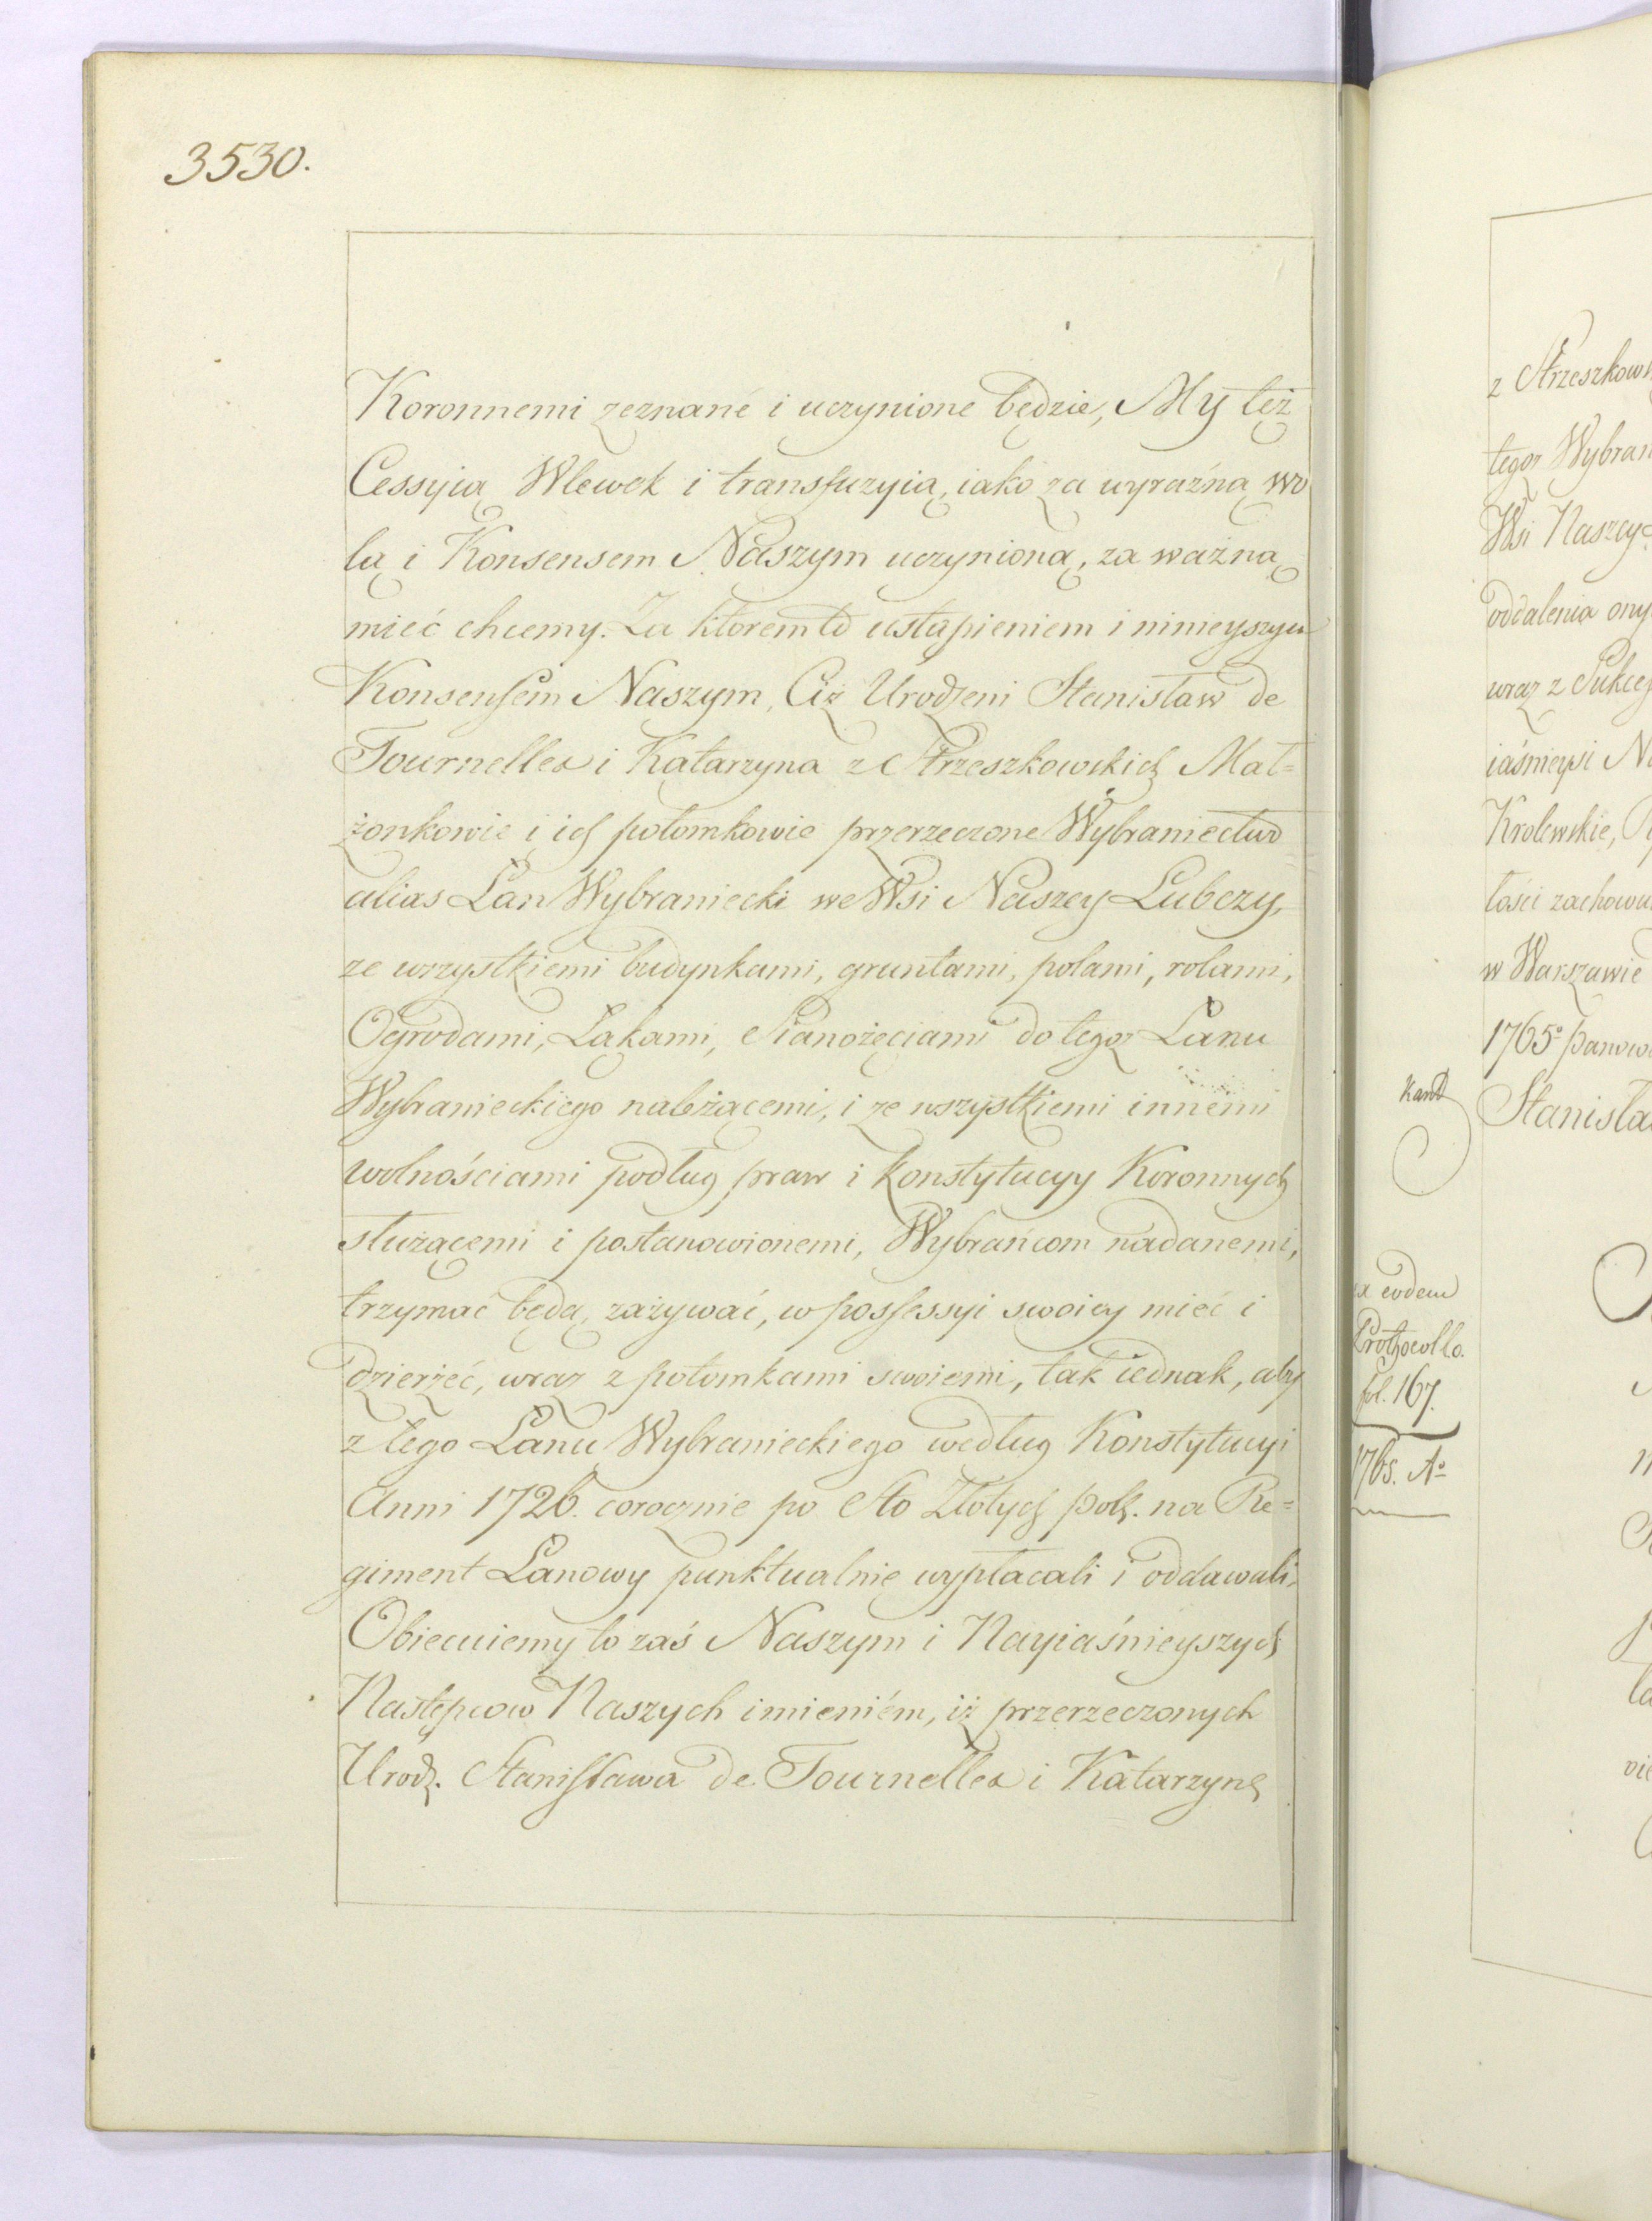 3530.
Koronnemi zeznané i uczynione będzie, My też
Cessyią Wlewek i transfuzyią, iako za wyraźną wo
lą i Konsensem Naszym uczynioną, za ważną
mieć chcemy. Za ktorem to ustąpieniem i ninieyszym
Konsensem Naszym, Ciż Urodzeni Stanisław de
Tournelles i Katarzyna z Strzeszkowskich Mał=
żonkowie i ich potomkowie przerzeczone Wybraniectwo
alias Łan Wybraniecki we Wsi Naszey Lubczy,
ze wszystkiemi budynkami, gruntami, polami, rolami,
Ogrodami, Łąkami, Sianożęciami do tegoż Łanu
Wybranieckiego należącemi, i ze wszystkiemi innemi
wolnościami podług praw i konstytucyy Koronnych
służącemi i postanowionemi, Wybrańcom nadanemi,
trzymać będą, zażywać, w possessyi swoiey mieć i
dzierżeć, wraz z potomkami swoiemi, tak iednak, aby
z tego Łanu Wybranieckiego według Konstytucyi
Anni 1726. corocznie po Sto Złotych polſ. na Re=
giment Łanowy punktualnie wypłacali i oddawali.
Obiecuiemy to zaś Naszym i Nayiaśnieyszych
Następcow Naszych imieniém, iż przerzeczonych
Urodz. Stanisława de Tournelles i Katarzynę
z Strzeszkows
tegoż Wybran
Wsi Naszey
oddalenia ony
wraz z Sukces
iaśnieysi Na
Krolewskie,
łości zachowu
w Warszawie
1765º panowa
Stanisła
ex eodem
Prothocollo.
fol. 167.
1765. Aº